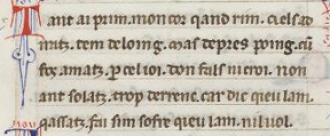 Tant ai prim. mon cor qand rim. cel so
nitz. tem de loing. mas de pres poing. cū
fos amatz. p cel ioi. don fals ni croi. non
ant solatz. trop derrenc. car dic qieu lam.
qassatz. fai sim sofre qieu lam. nil uol.